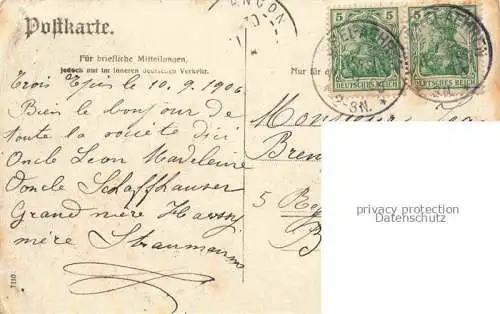 Postkarte.
Für briefliche Mitteilungen,
jedoch nur im inneren deutschen Verkehr.
Nur für
5 5 5
DEUTSCHES REICH DEUTSCHES REICH
2-3N.
Trois Epis le 10.9.1906
Bien le bonjour de
toute la société d'ici
Oncle Léon Madeleine
Oncle Schaffhauser
Grand mère
mère Straumann
Monsieur
5
privacy protection
Datenschutz
7310